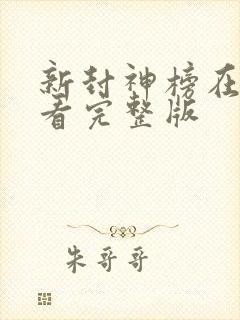 新封神榜在
看完整版
朱哥哥